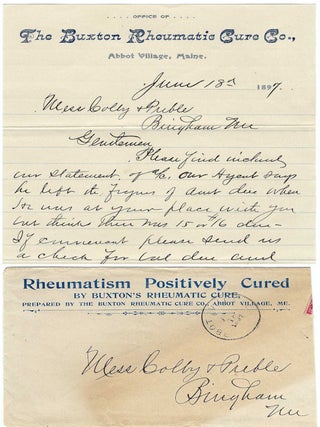 OFFICE OF
The Buxton Rheumatic Cure Co.,
Abbot Village, Maine.
June 18th 1897.
Mess Colby & Preble
Bingham Me
Gentlemen
Please find inclosed
our Statement of %, our Agent says
he left the figures of amt due when
he was at your place with you
but think there was 15 or $16 due
If convenient please send us
a check for bal due and
Rheumatism Positively Cured
BY BUXTON'S RHEUMATIC CURE,
PREPARED BY THE BUXTON RHEUMATIC CURE CO., ABBOT VILLAGE, ME.
ABBOT
Mess Colby & Preble
Bingham
Me